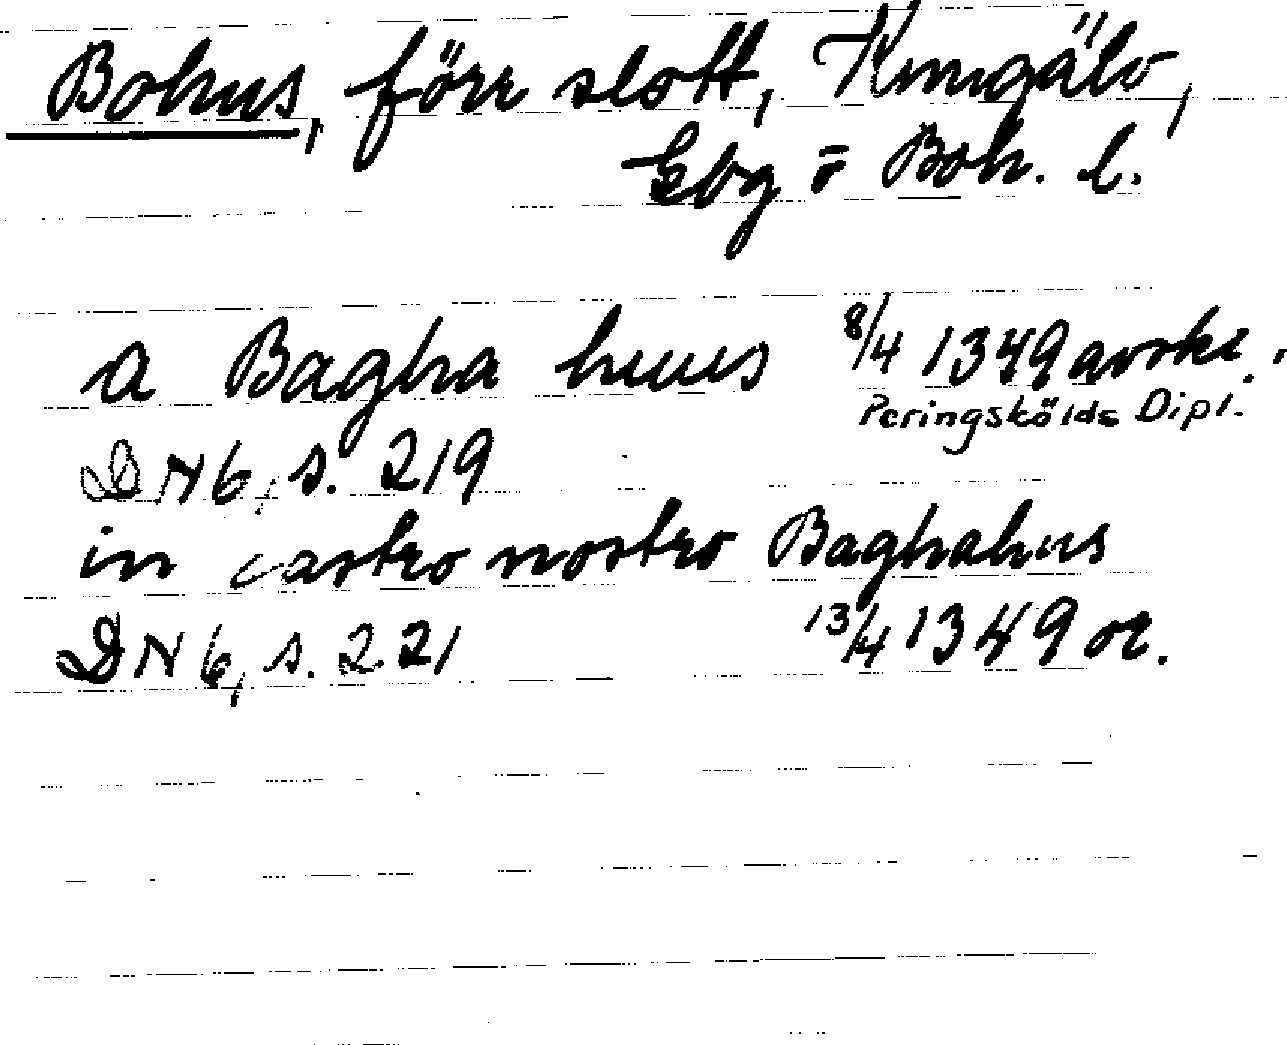 Bohus, förr slott, Kungälv,
Gbg o Boh. l.
a Bagha huus 8/4 1349 avskr.
Peringskölds Dipl.
DN 6, s. 219
in castro nostro Baghahus
DN 6, s. 221 13/4 1349 or.